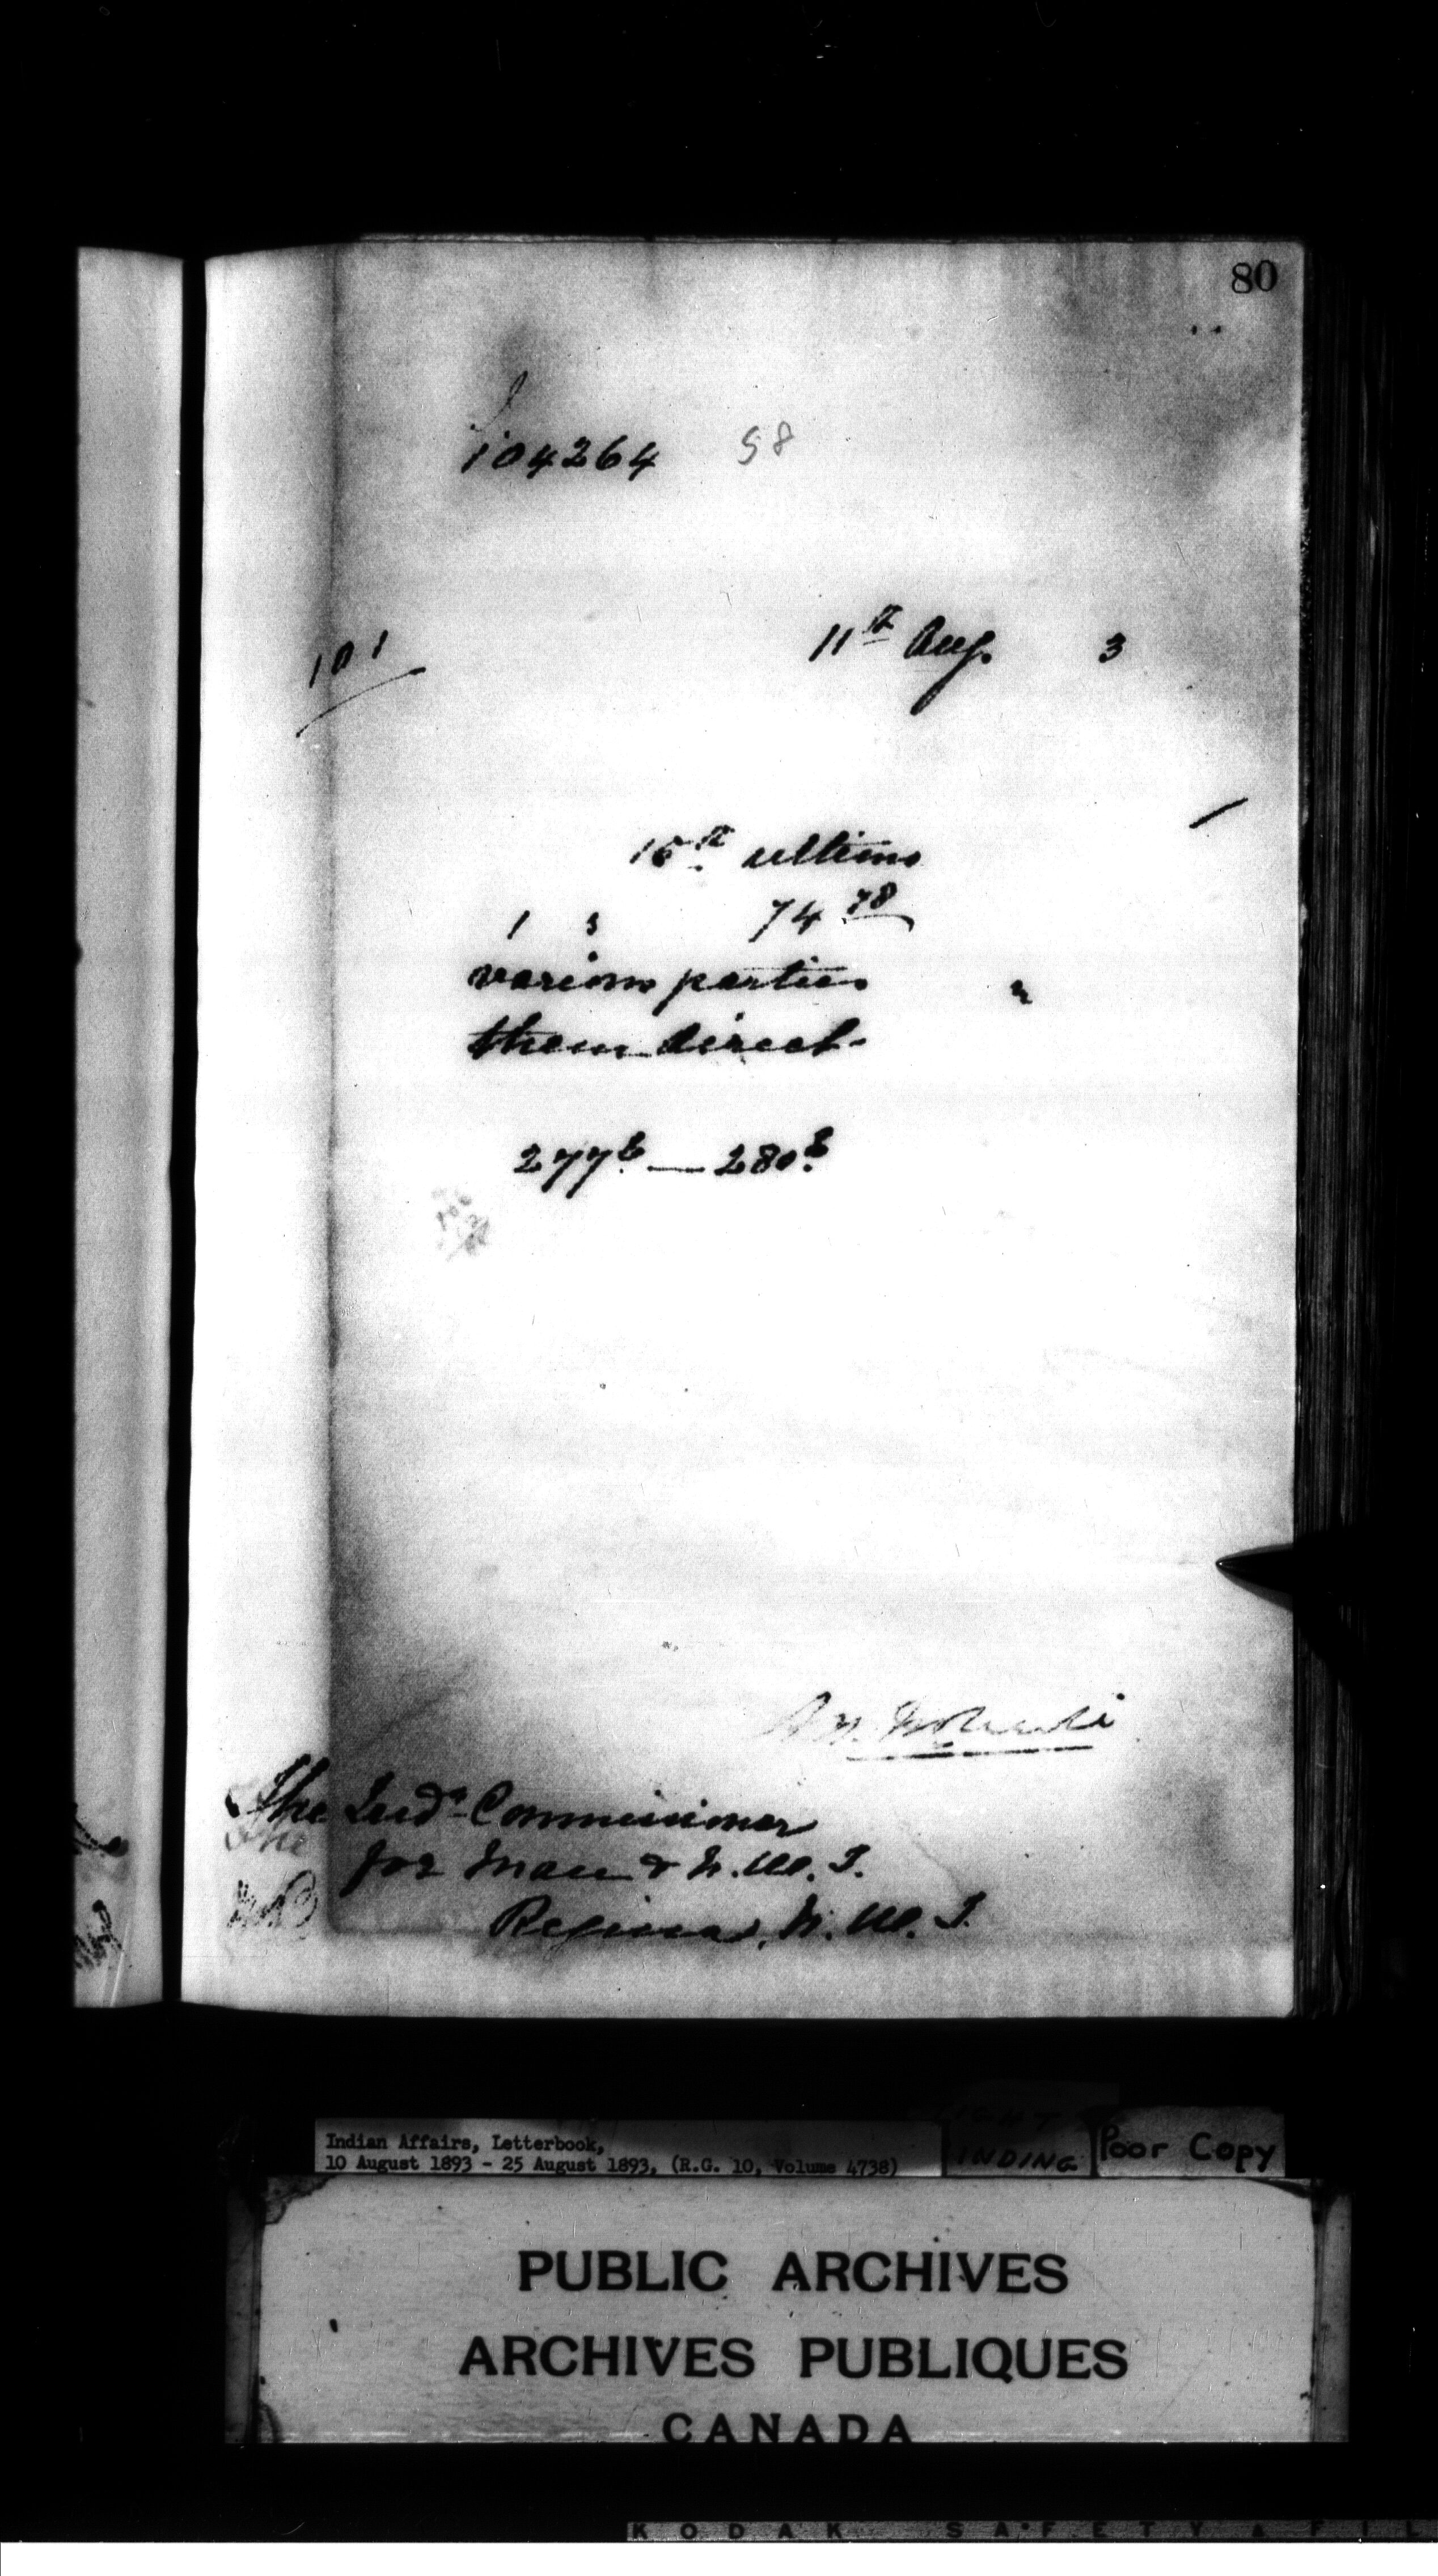 80
104264 58
101
11th Aug. 3
15th ultimo
1 s 74 78
various parties
them direct
277b — 280b
The Indn Commissioner
for Man & N.W.T.
Regina, N.W.T.
Indian Affairs, Letterbook,
10 August 1893 - 25 August 1893, (R.G. 10, Volume 4738)
INDING
Poor Copy
PUBLIC ARCHIVES
ARCHIVES PUBLIQUES
CANADA
KODAK SAFETY FIL